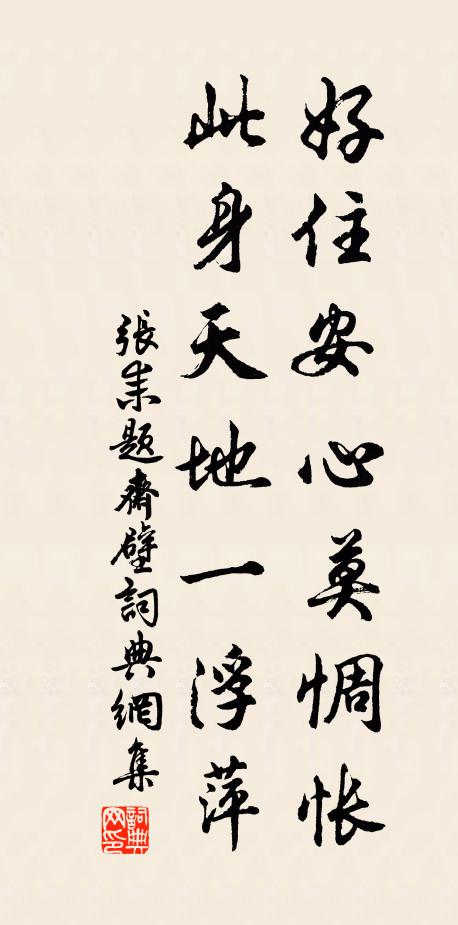 好住安心莫惆怅
此身天地一浮萍
張耒題齋壁詞典網集
詞典
网印